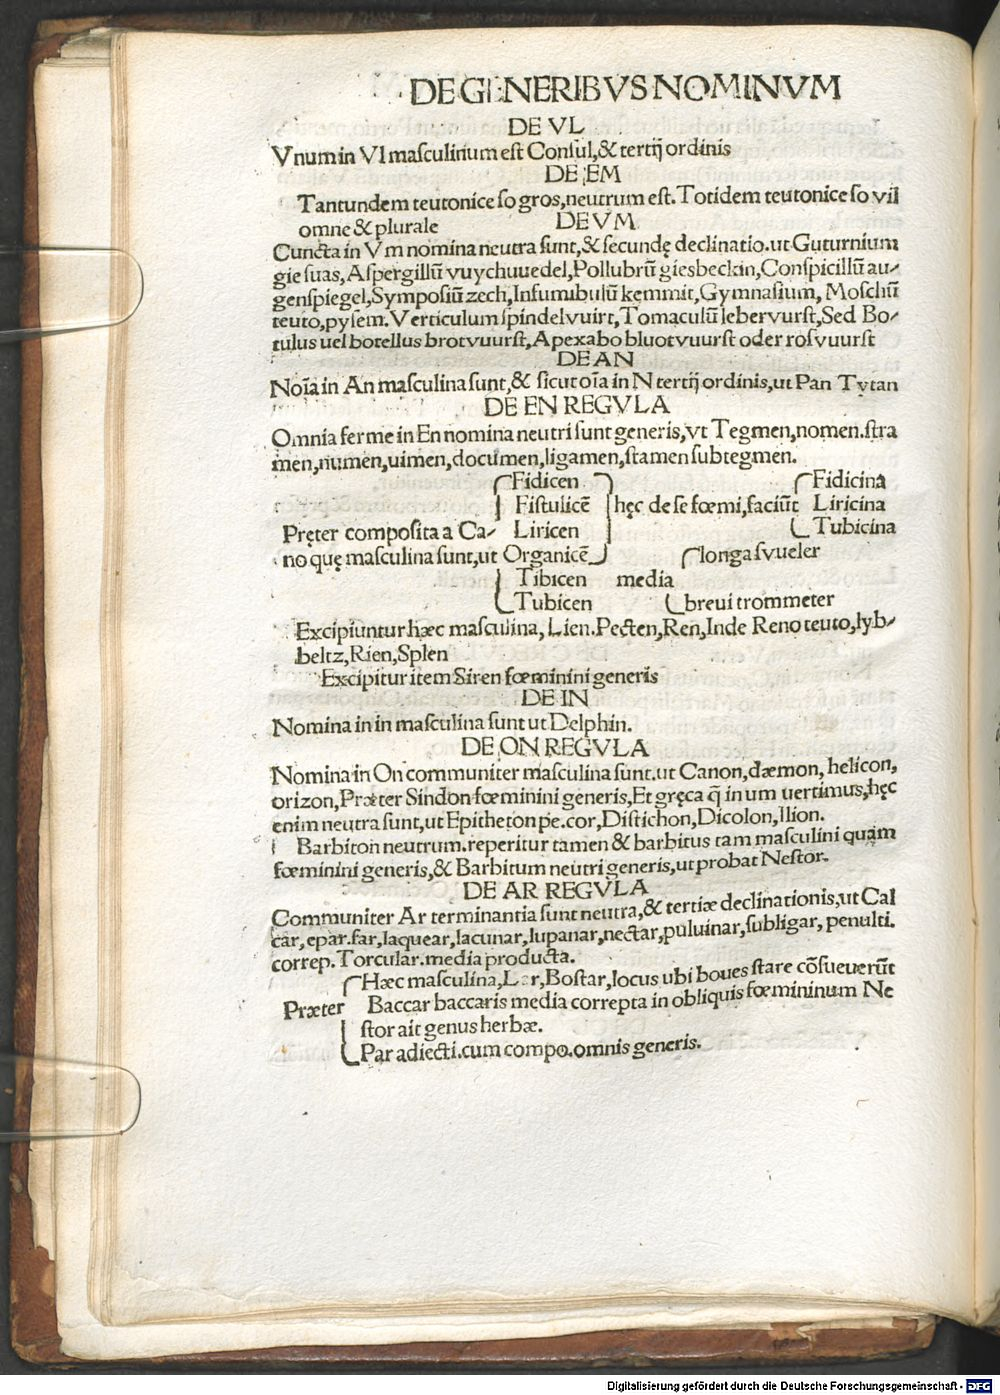 DE GENERIBVS NOMINVM
DE VL
Vnum in Vl masculinum est Consul,& tertij ordinis
DE EM
Tantundem teutonice so gros,neutrum est. Totidem teutonice so vil
omne & plurale DE VM
Cuncta in Vm nomina neutra sunt,& secundę declinatio.ut Guturnium
giesuas,Aspergillū vuychuuedel,Pollubrū giesbeckin,Conspicillū au-
genspiegel,Symposiū zech,Infumibulū kemmit,Gymnasium, Moschū
teuto,pysem.Verticulum spindelvuirt,Tomaculū lebervurst,Sed Bo-
tulus uel botellus brotvuurst,Apexabo bluotvuurst oder rosvuurst
DE AN
Noīa in An masculina sunt,& sicut oīa in N tertij ordinis,ut Pan Tytan
DE EN REGVLA
Omnia ferme in En nomina neutri sunt generis,vt Tegmen,nomen.stra
men,numen,uimen,documen,ligamen,stamen subtegmen.
Fidicen Fidicina
Fistulicē hęc de se fœmi,faciūt Liricina
Pręter composita a Ca- Liricen Tubicina
no quę masculina sunt,ut Organicē longa svueler
Tibicen media
Tubicen brevi trommeter
Excipiuntur hæc masculina, Lien.Pecten,Ren,Inde Reno teuto,lyb-
beltz,Rien,Splen
Excipitur item Siren fœminini generis
DE IN
Nomina in in masculina sunt ut Delphin.
DE ON REGVLA
Nomina in On communiter masculina sunt.ut Canon,dæmon, helicon,
orizon,Præter Sindon fœminini generis,Et gręca q̄ in um uertimus,hęc
enim neutra sunt,ut Epitheton pe.cor,Distichon,Dicolon,Ilion.
Barbiton neutrum.reperitur tamen & barbitus tam masculini quam
fœminini generis,& Barbitum neutri generis,ut probat Nestor.
DE AR REGVLA
Communiter Ar terminantia sunt neutra,& tertiæ declinationis,ut Cal
car, epar.far,laquear,lacunar,lupanar,nectar,puluinar,subligar, penulti.
correp.Torcular.media producta.
Hæc masculina,Lar,Bostar,locus ubi boues stare cōsueuerūt
Præter Baccar baccaris media correpta in obliquis fœmininum Ne
stor ait genus herbæ.
Par adiecti.cum compo.omnis generis.
Digitalisierung gefördert durch die Deutsche Forschungsgemeinschaft - DFG